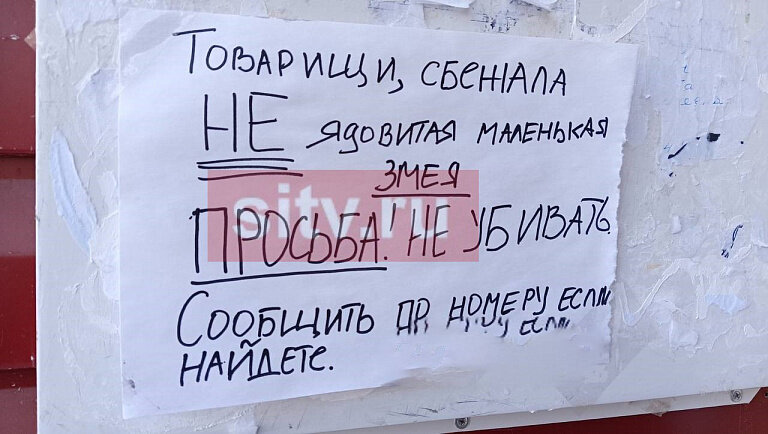 Товарищи, сбежала
НЕ ядовитая маленькая
змея
sity.ru
ПРОСЬБА! НЕ УБИВАТЬ.
Сообщить по номеру если
найдете.